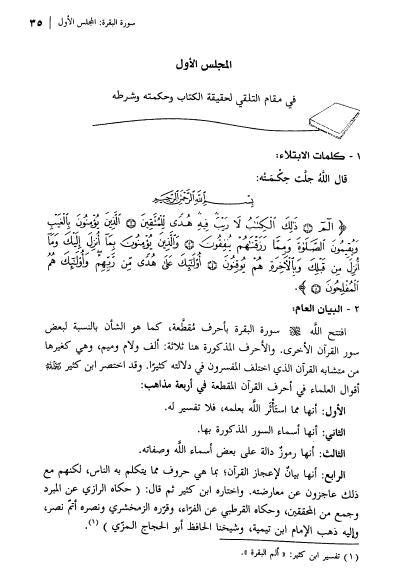 سورة البقرة: المجلس الأول | ٣٥
المجلس الأول
في مقام التلقي لحقيقة الكتاب وحكمته وشرطه
١ - كلمات الابتلاء:
قال اللَّهُ جلَّت حِكْمَتُه:
بِسْمِ اللَّهِ الرَّحْمَنِ الرَّحِيمِ
﴿ الٓمٓ ۝ ذَٰلِكَ ٱلْكِتَٰبُ لَا رَيْبَ فِيهِ هُدًى لِّلْمُتَّقِينَ ۝ ٱلَّذِينَ يُؤْمِنُونَ بِٱلْغَيْبِ
وَيُقِيمُونَ ٱلصَّلَوٰةَ وَمِمَّا رَزَقْنَٰهُمْ يُنفِقُونَ ۝ وَٱلَّذِينَ يُؤْمِنُونَ بِمَآ أُنزِلَ إِلَيْكَ وَمَآ
أُنزِلَ مِن قَبْلِكَ وَبِٱلْءَاخِرَةِ هُمْ يُوقِنُونَ ۝ أُو۟لَٰٓئِكَ عَلَىٰ هُدًى مِّن رَّبِّهِمْ وَأُو۟لَٰٓئِكَ هُمُ
ٱلْمُفْلِحُونَ ۝ ﴾.
٢ - البيان العام:
افتتح اللَّه ﷻ سورة البقرة بأحرف مُقطَّعة، كما هو الشأن بالنسبة لبعض
سور القرآن الأخرى. والأحرف المذكورة هنا ثلاثة: ألف ولام وميم، وهي كغيرها
من متشابه القرآن الذي اختلف المفسرون في دلالته كثيرًا. وقد اختصر ابن كثير رحمه الله
أقوال العلماء في أحرف القرآن المقطعة في أربعة مذاهب:
الأول: أنها مما استأثَر اللَّه بعلمه، فلا تفسير له.
الثاني: أنها أسماء السور المذكورة بها.
الثالث: أنها رموزٌ دالة على بعض أسماء اللَّه وصفاته.
الرابع: أنها بيانٌ لإعجاز القرآن؛ بما هي حروف مما يتكلم به الناس، لكنهم مع
ذلك عاجزون عن معارضته. واختاره ابن كثير ثم قال: ( حكاه الرازي عن المبرد
وجمع من المحققين، وحكاه القرطبي عن الفرَّاء، وقرّره الزمخشري ونصره أتمّ نصر،
وإليه ذهب الإمام ابن تيمية، وشيخنا الحافظ أبو الحجاج المزّي ) (١).
(١) تفسير ابن كثير: « ألم البقرة ».